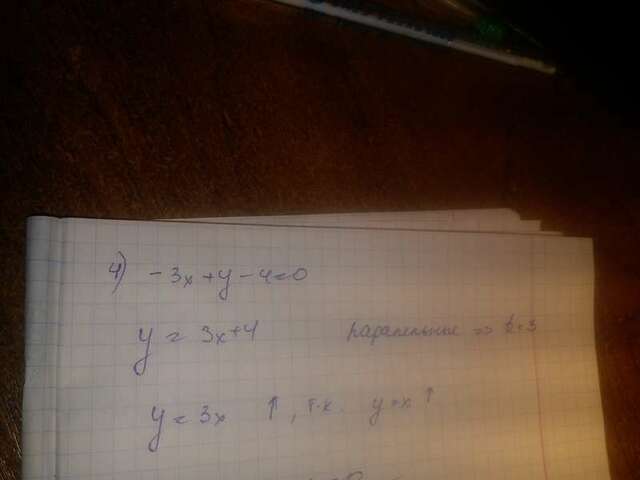 4) -3x+y-4=0
y = 3x+4 паралельные => k=3
y = 3x ↑, т.к. y=x ↑